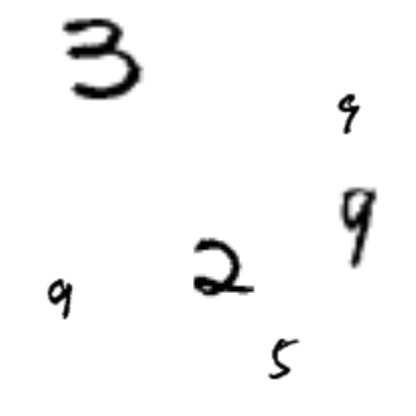 3
9
9
2
9
5